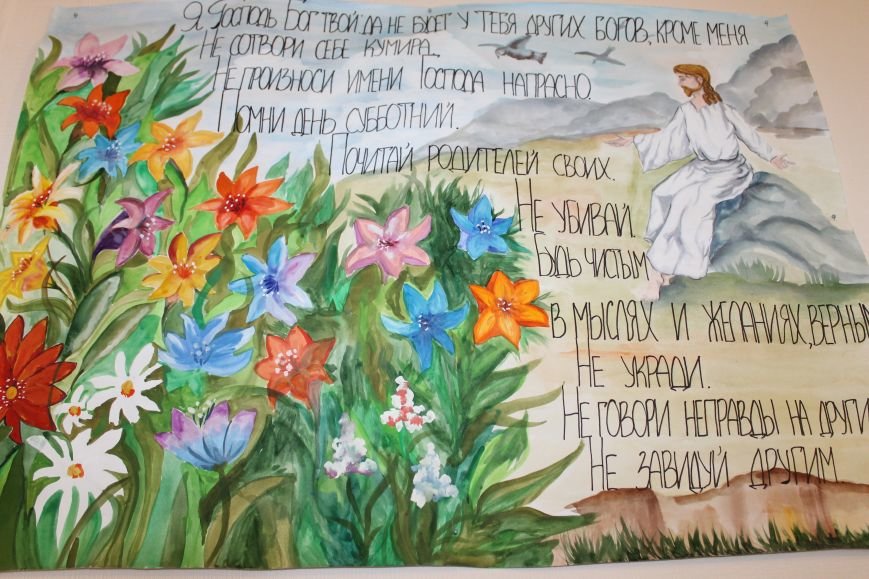 Я, Господь Бог твой да не будет у тебя других богов, кроме меня
Не сотвори себе кумира.
Не произноси имени Господа напрасно.
Помни день субботний.
Почитай родителей своих.
Не убивай.
Будь чистым
в мыслях и желаниях, верным
Не укради.
Не говори неправды на други
Не завидуй другим